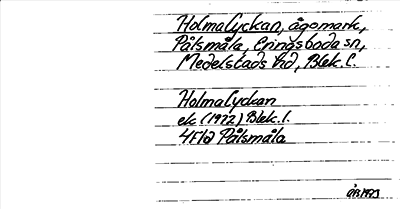 Holmalyckan, ägomark,
Pålsmåla, Eringsboda sn,
Medelstads hd, Blek. l.
Holmalyckan
ek (1972) Blek. l.
4F1d Pålsmåla